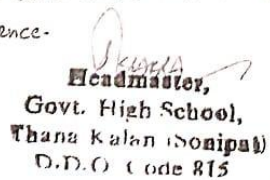 ence-
Headmaster,
Govt. High School,
Thana Kalan (Sonipat)
D.D.O Code 815